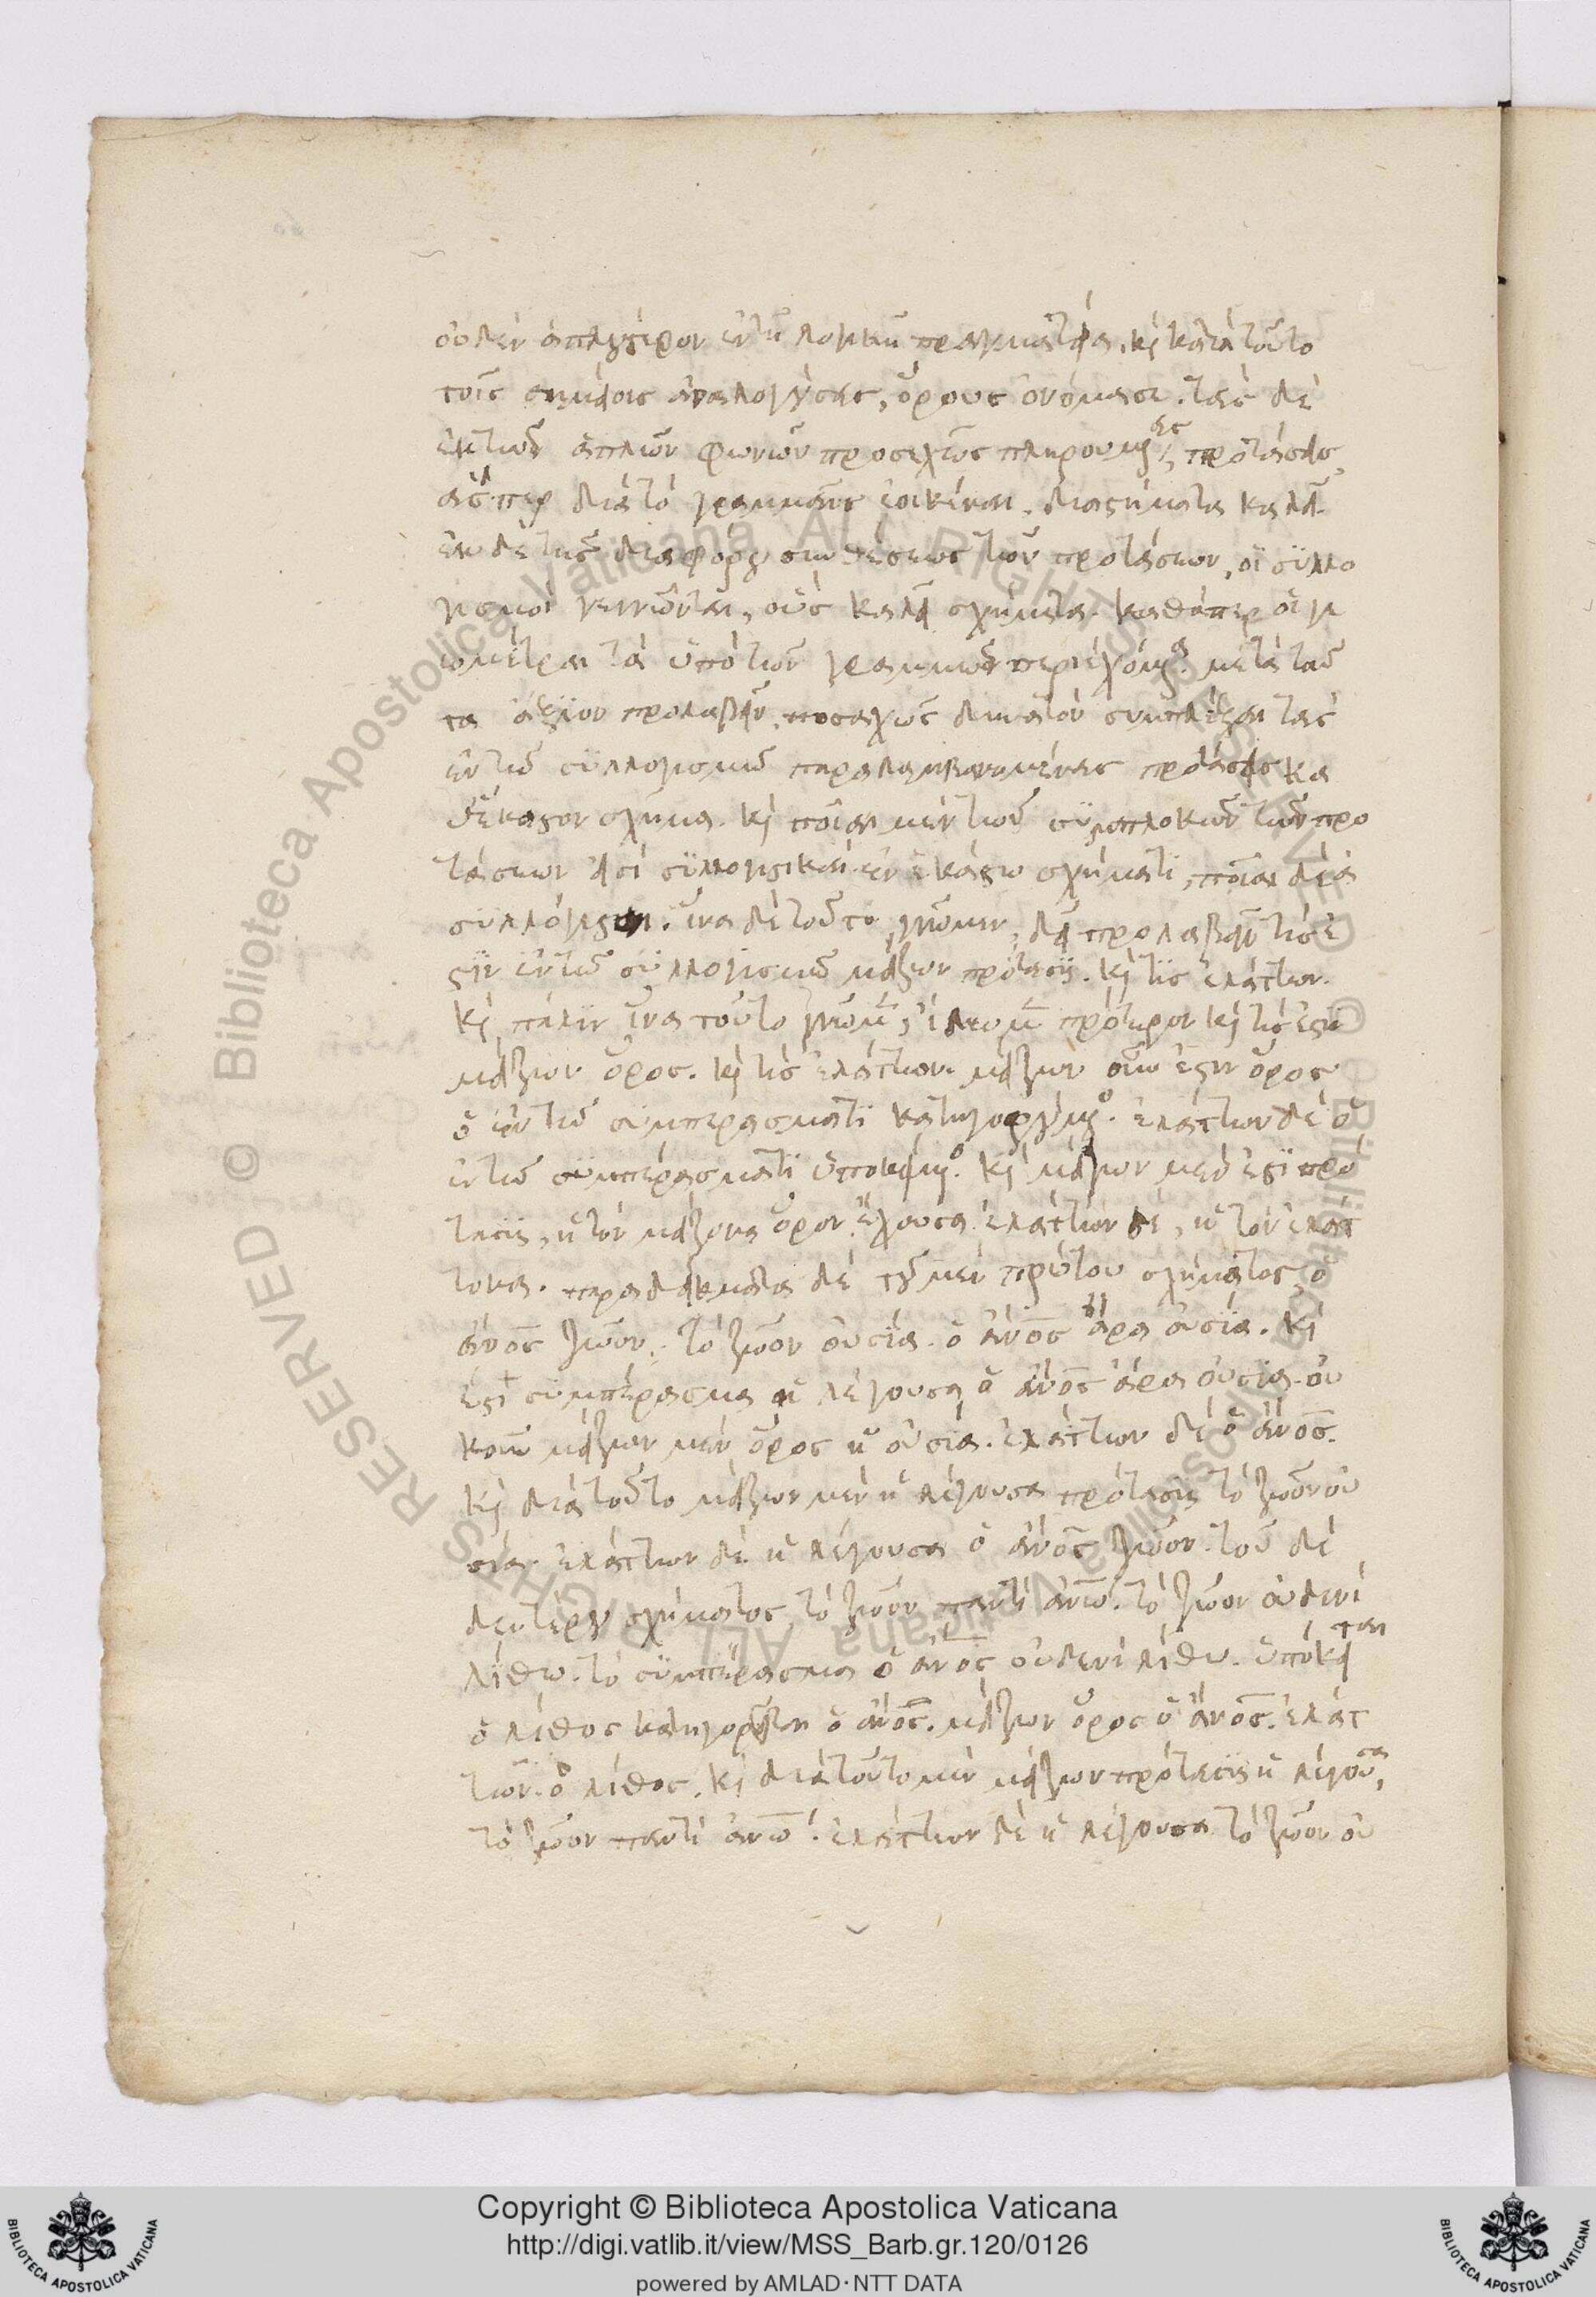 οὐδὲν ἁπλούστερον ἐν τῆ λογικῆ πραγματεία. κὶ κατὰ τοῦτο
τοῖς σημείοις ἀναλογήσας, ὅρους ὀνόμασε. τὰς δὲ
ἐκ τῶν ἁπλῶν φωνῶν προσεχῶς πληρουμένας, προτάσεις,
ἅσπερ διὰ τὸ γραμμαῖς ἐοικέναι, διαστήματα καλεῖ.
ἐκ δὲ τῆς διαφόρου συνθέσεως τῶν προτάσεων, οἱ συλλο
γισμοὶ γεννῶνται, οὓς καλεῖ σχήματα. καθάπερ οἱ γε
ωμέτραι τὰ ὑπὸ τῶν γραμμῶν περιεχόμενα. μετὰ ταῦ
τα ἄξιον προλαβεῖν, ποσαχῶς δυνατὸν συμπλέξαι τὰς
ἐν τῶ συλλογισμῶ παραλαμβανομένας προτάσεις κα
θ' ἕκαστον σχῆμα. κὶ ποῖαι μὲν τῶν συμπλοκῶν τῶν προ
τάσεων εἰσὶ συλλογιστικαὶ ἐν ἑκάστω σχήματι, ποῖαι δὲ ἀ
συλλόγιστοι. ἵνα δὲ τοῦτο γνῶμεν, δεῖ προλαβεῖν τίς ἐ
στιν ἐν τῶ συλλογισμῶ μείζων πρότασις. κὶ τίς ἐλάττων.
κὶ πάλιν ἵνα τοῦτο γνῶμεν, εἰδῶμεν πρότερον κὶ τίς ἐστι
μείζων ὅρος. κὶ τίς ἐλάττων. μείζων οὖν ἐστιν ὅρος
ὁ ἐν τῶ συμπεράσματι κατηγορούμενος. ἐλάττων δὲ ὁ
ἐν τῶ συμπεράσματι ὑποκείμενος. κὶ μείζων μέν ἐστι πρό
τασις, ἡ τὸν μείζονα ὅρον ἔχουσα. ἐλάττων δὲ, ἡ τὸν ἐλάτ
τονα. παραδείγματα δὲ τοῦ μὲν πρώτου σχήματος, ὁ
ἄνος ζῶον. τὸ ζῶον οὐσία. ὁ ἄνος ἄρα οὐσία. κὶ
ἔστι συμπέρασμα ἡ λέγουσα ὁ ἄνος ἄρα οὐσία. οὐ
κοῦν μείζων μὲν ὅρος ἡ οὐσία. ἐλάττων δὲ ὁ ἄνος.
κὶ διὰ τοῦτο μείζων μὲν ἡ λέγουσα πρότασις τὸ ζῶον οὐ
σία. ἐλάττων δὲ ἡ λέγουσα ὁ ἄνος ζῶον. τοῦ δὲ
δευτέρου σχήματος, τὸ ζῶον παντὶ ἀνω. τὸ ζῶον οὐδενὶ
λίθω. τὸ συμπέρασμα ὁ ἄνος οὐδενὶ λίθω. ὑπόκειται
ὁ λίθος κατηγορεῖται ὁ ἄνος. μείζων ὅρος ὁ ἄνος. ἐλάτ
των ὁ λίθος. κὶ διὰ τοῦτο μὲν μείζων πρότασις ἡ λέγουσα,
τὸ ζῶον παντὶ ἀνω. ἐλάττων δὲ ἡ λέγουσα τὸ ζῶον οὐ
Copyright © Biblioteca Apostolica Vaticana
http://digi.vatlib.it/view/MSS_Barb.gr.120/0126
powered by AMLAD·NTT DATA